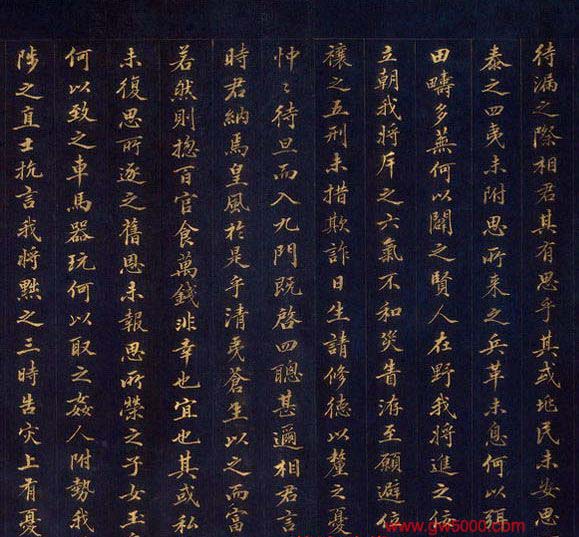 待漏之際相君其有思乎其或兆民未安思
泰之四夷未附思所來之兵革未息何以弭
田疇多蕪何以闢之賢人在野我將進之佞
立朝我將斥之六氣不和災眚洊至願避位
禳之五刑未措欺詐日生請修德以釐之憂
忡〻待旦而入九門既啓四聰甚邇相君言
時君納焉皇風於是乎清夷蒼生以之而富
若然則揔百官食萬錢非幸也宜也其或私
未復思所逐之舊恩未報思所榮之子女玉
何以致之車馬器玩何以取之姦人附勢我
陟之直士抗言我將黜之三時告灾上有憂
www.gw5000.com